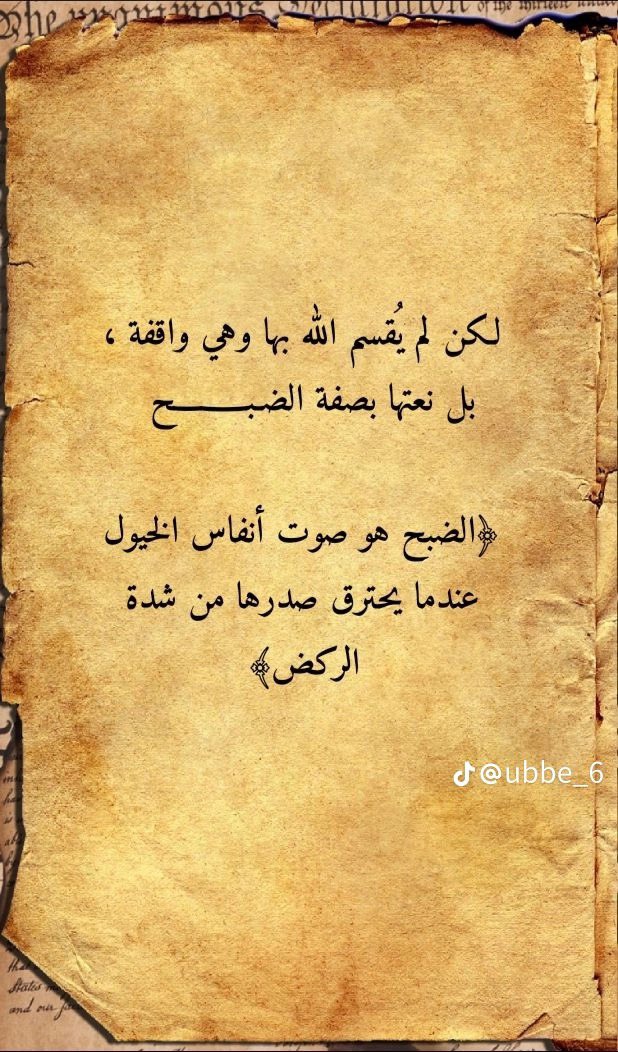 The unanimous Declaration of the thirteen united
لكن لم يُقسم الله بها وهي واقفة ،
بل نعتها بصفة الضبـــــــح
﴿الضبح هو صوت أنفاس الخيول
عندما يحترق صدرها من شدة
الركض﴾
@ubbe_6
that
States
and our